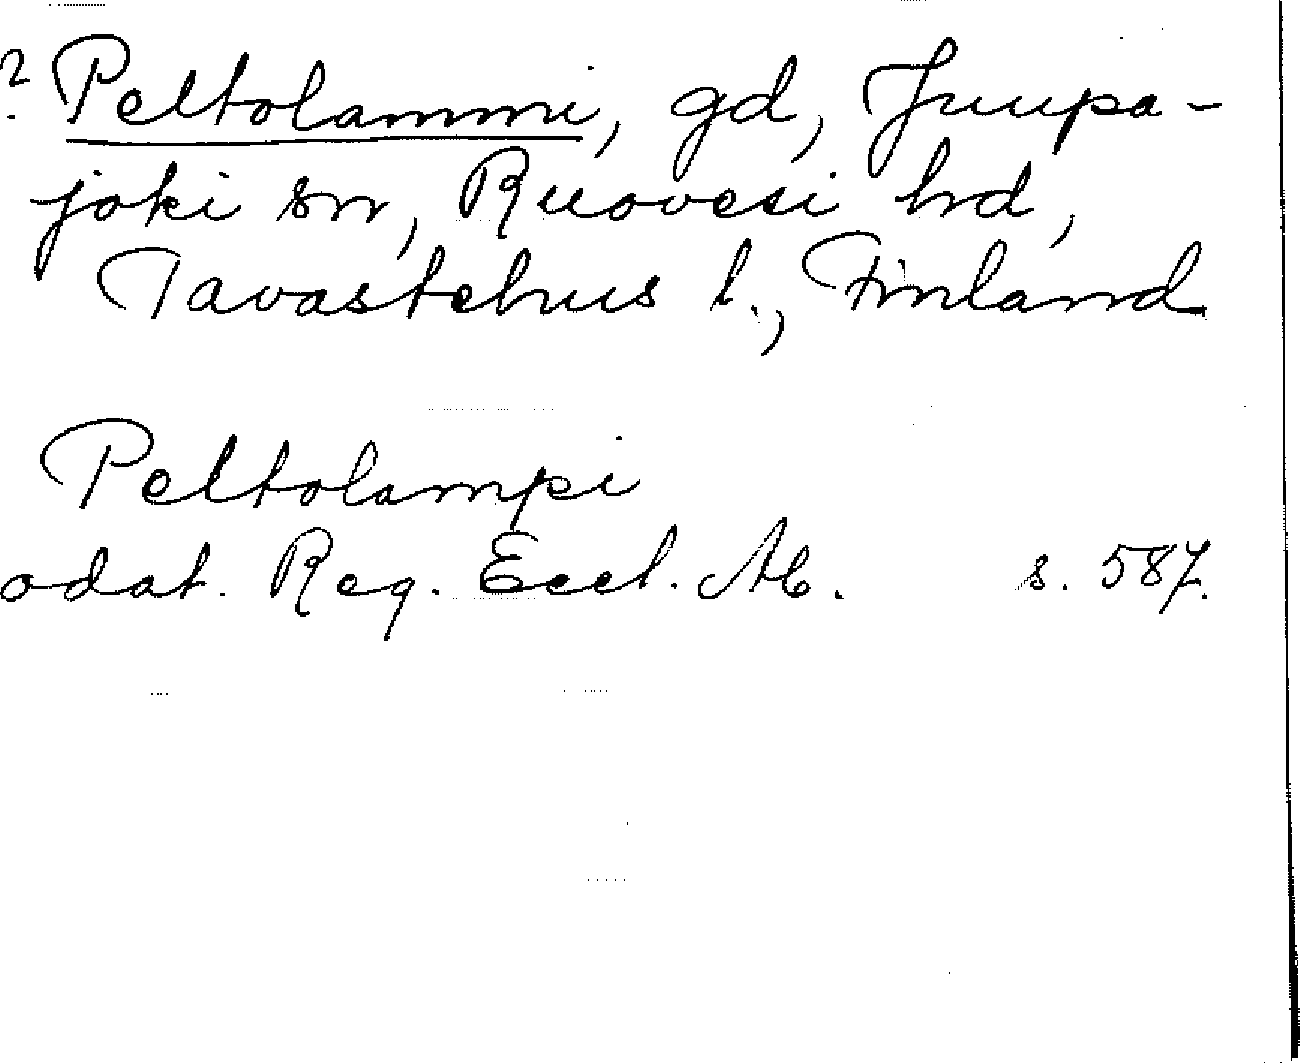 ? Peltolammi, gd, Juupa-
joki sn, Ruovesi hd,
Tavastehus l., Finland
Peltolampi
odat. Reg. Eccl. Ab. s. 587.